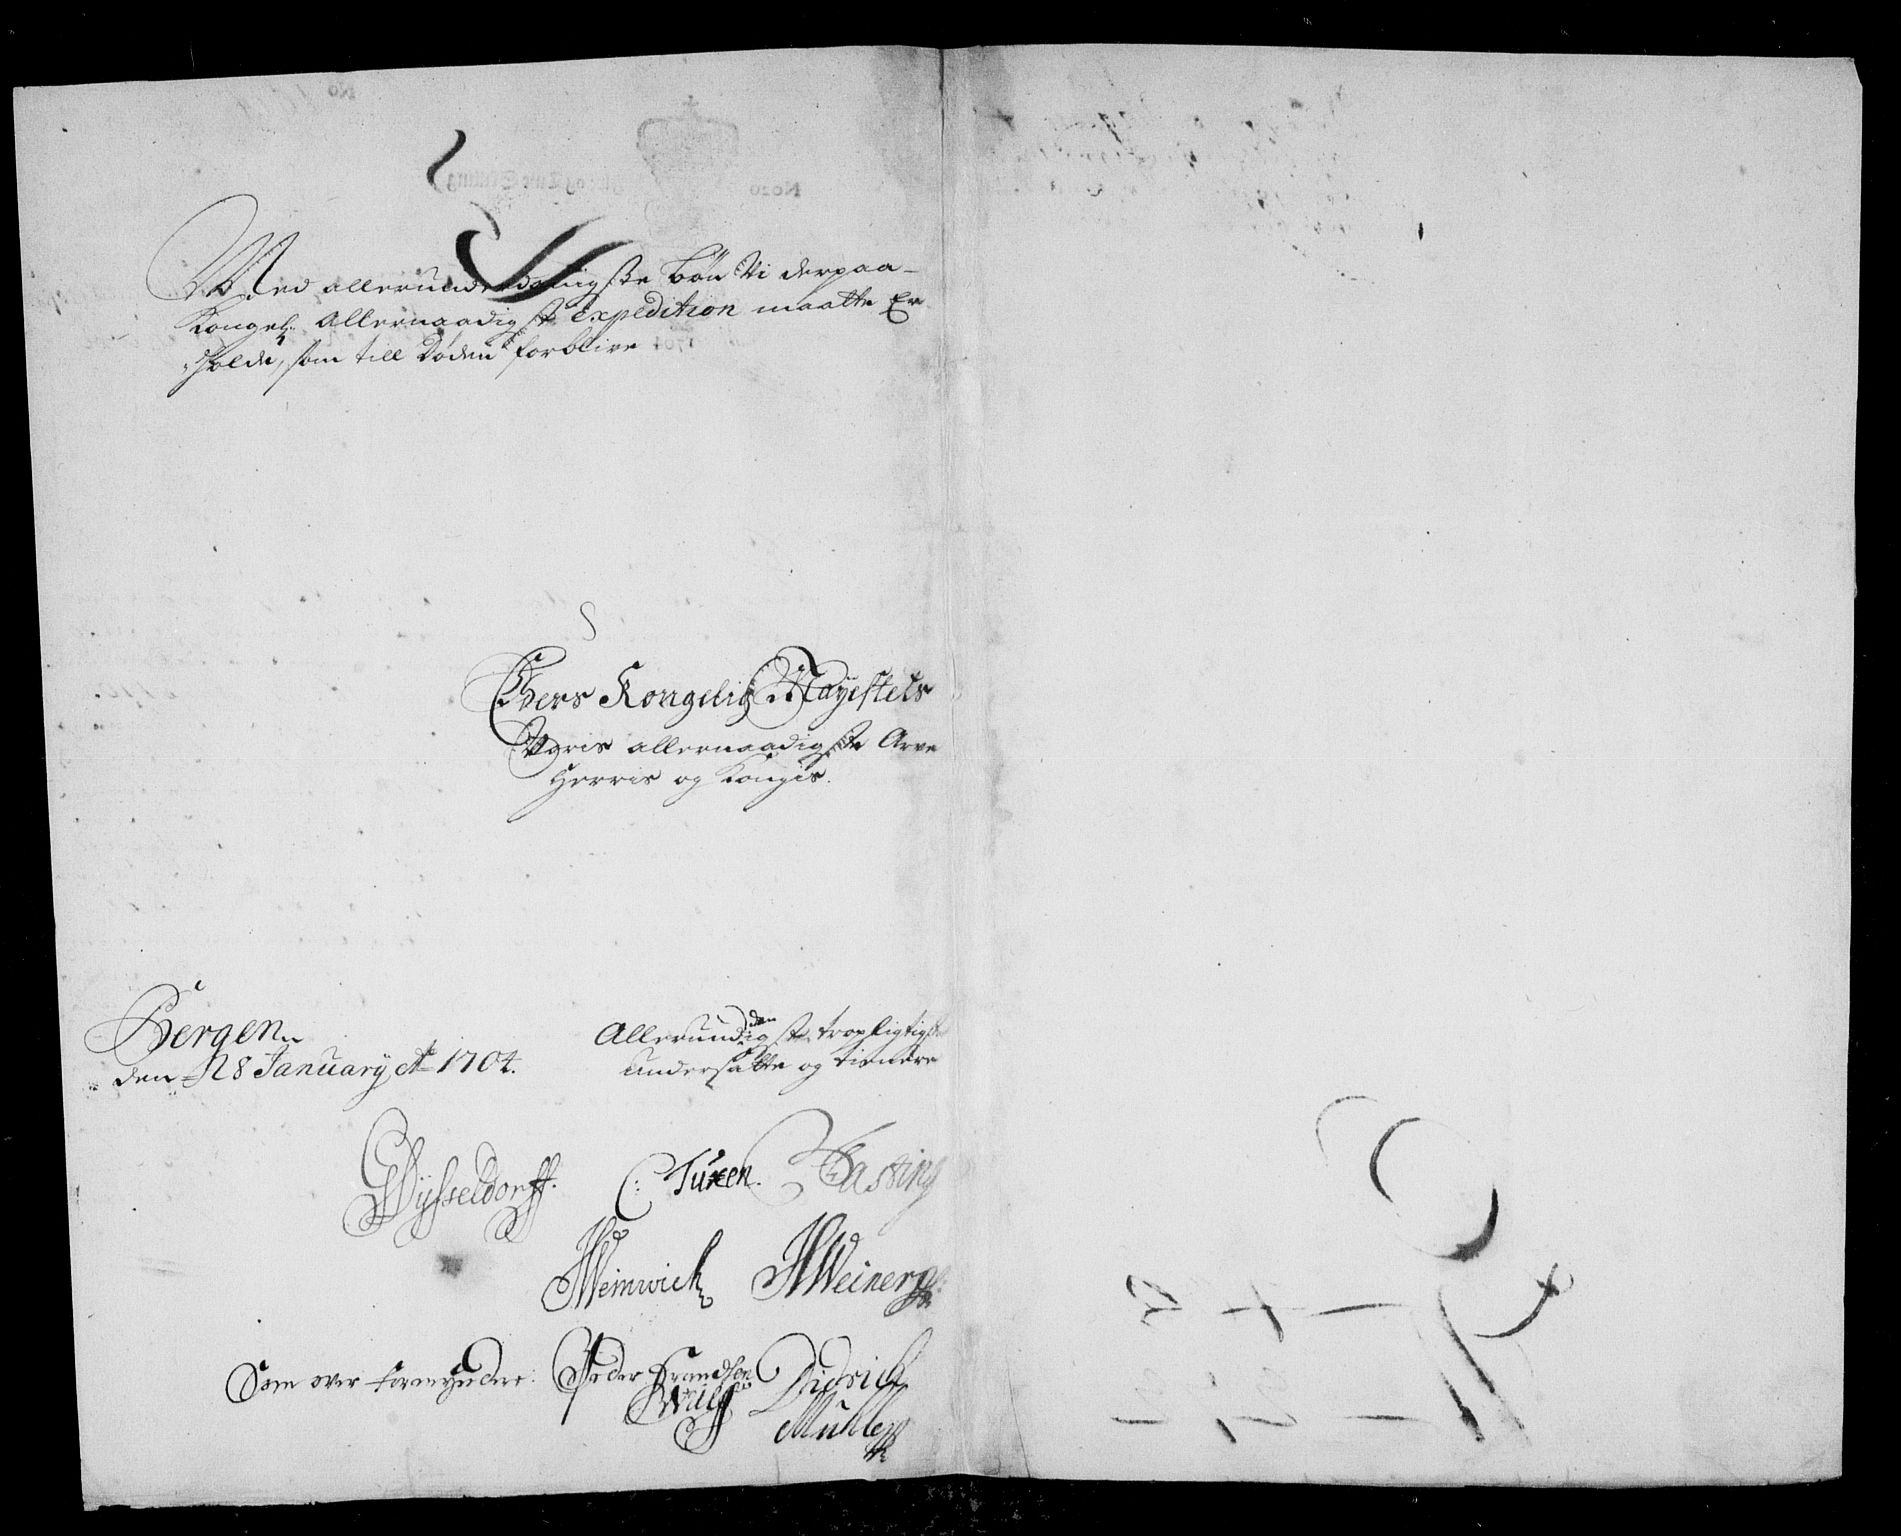 Med allerunderdanigste bøn Vi derpaa
Kongel: Allernaadigst expedition maatte Er
holde, som till Døden forblive
Eders Kongelig Mayestets
Voris allernaadigste Arve
Herris og Kongis.
Bergen
den 28 January Ao 1704.
Allerunddenigste tropligtigste
undersatte og tienere
GWysseldorff.
C: Tuxen.
Fasting
HWeinwich
HWeinerg
Som over formyndere:
Peder Frandsen
Wulff
Didrich
Muhle